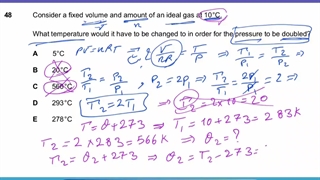 48 Consider a fixed volume and amount of an ideal gas at 10°C.
What temperature would it have to be changed to in order for the pressure to be doubled?
A 5°C
B 20°C
C 566°C
D 293°C
E 278°C
PV = nRT ⇒
V/nR = T/P ⇒ T₁/P₁ = T₂/P₂ ⇒
T₂/T₁ = P₂/P₁, P₂ = 2P₁ ⇒ T₂/T₁ = 2P₁/P₁ = 2 ⇒
T₂ = 2T₁ ⇒ T₂ = 2 × 10 = 20
T = θ + 273 ⇒ T₁ = 10 + 273 = 283K
T₂ = 2 × 283 = 566K ⇒ θ₂ = ?
T₂ = θ₂ + 273 ⇒ θ₂ = T₂ - 273 =